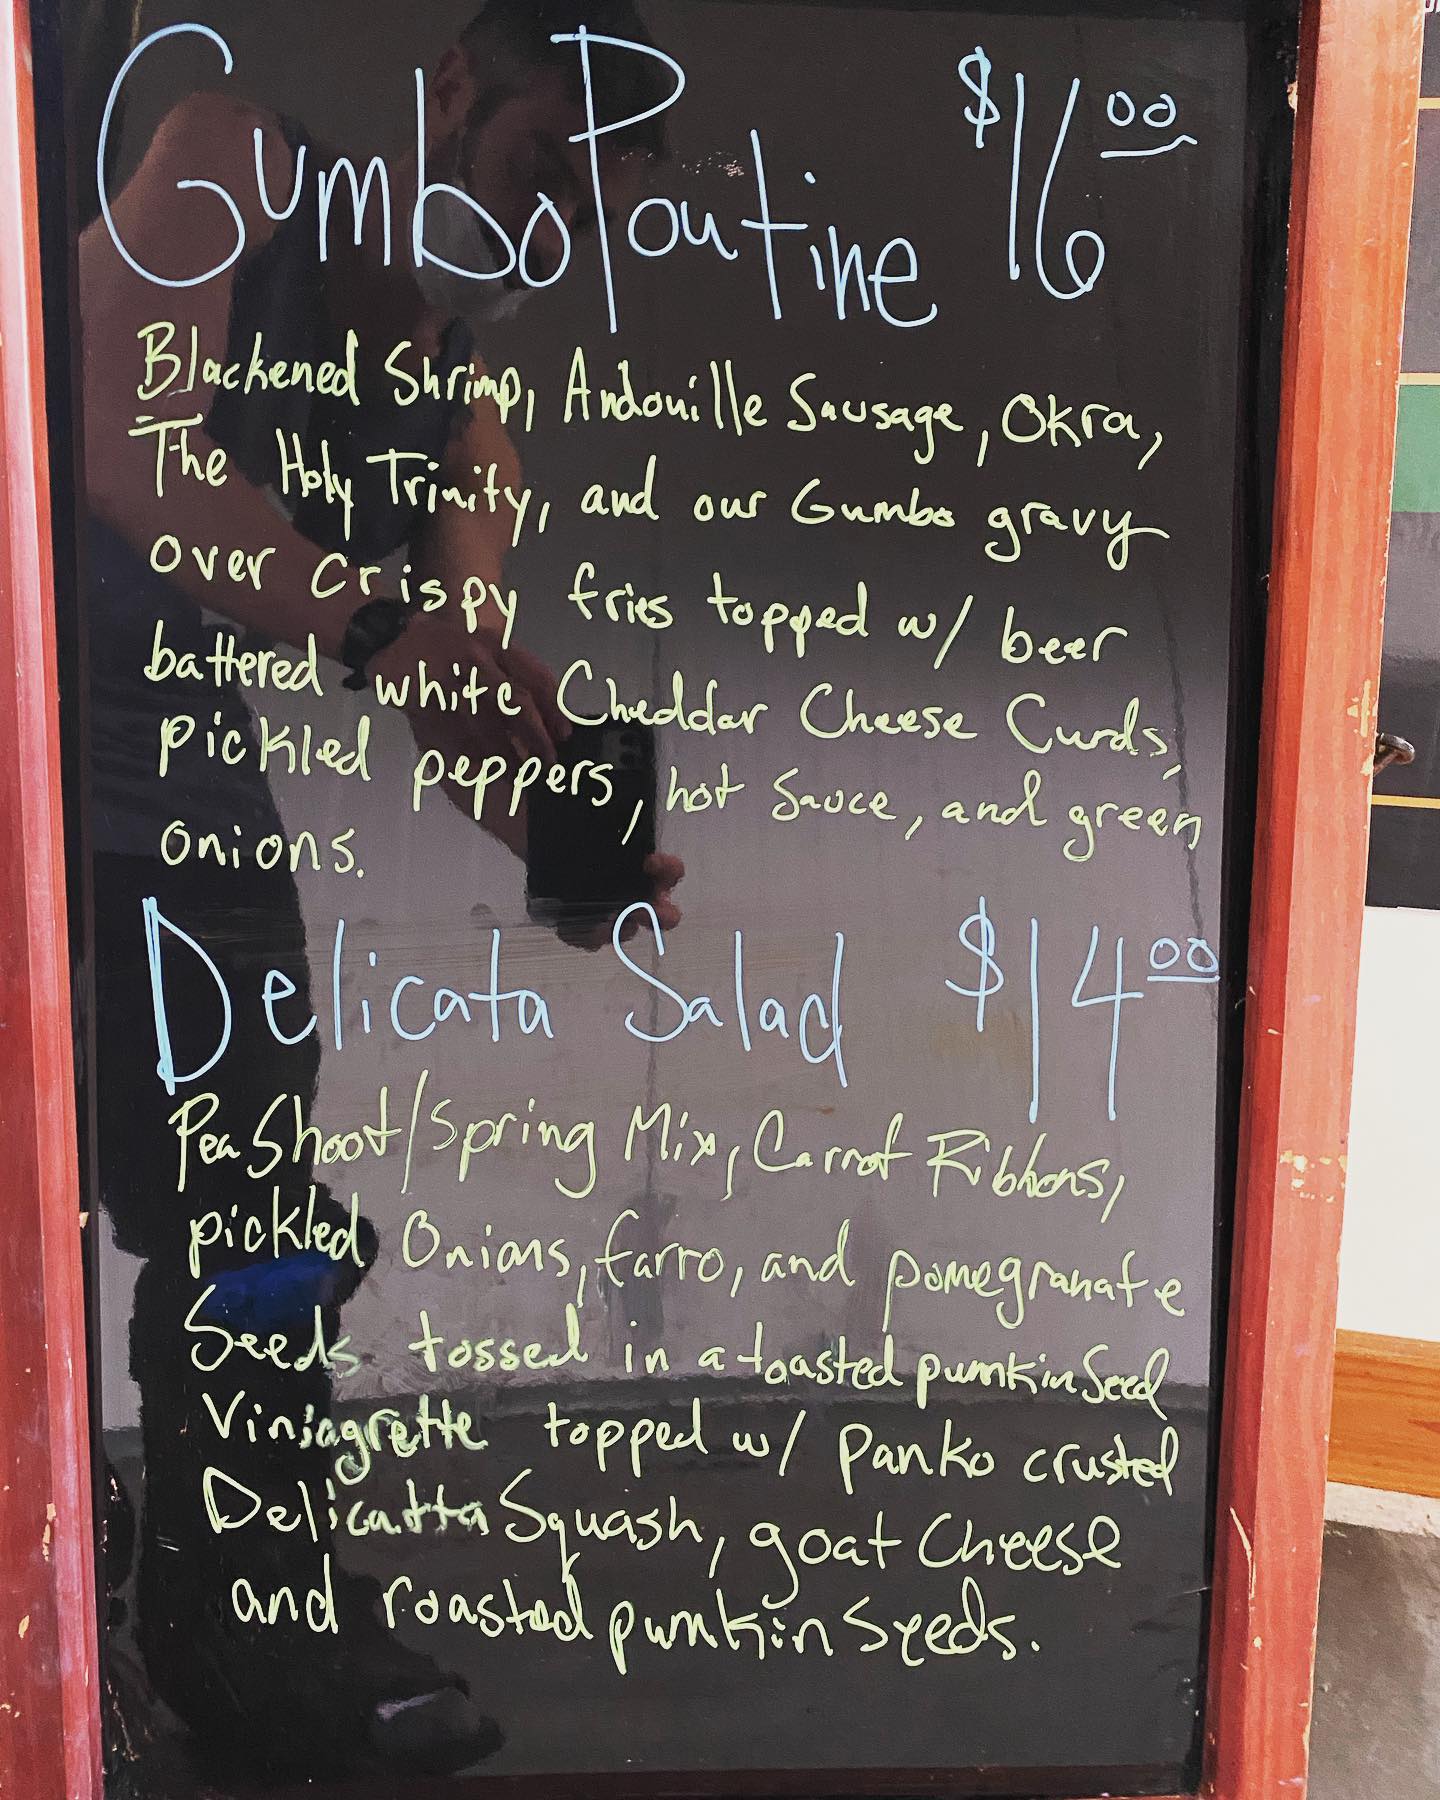 Gumbo Poutine $16.00
Blackened Shrimp, Andouille Sausage, Okra,
The Holy Trinity, and our Gumbo gravy
over crispy fries topped w/ beer
battered white Cheddar Cheese Curds,
pickled peppers, hot Sauce, and green
onions.
Delicata Salad $14.00
Pea Shoot/Spring Mix, Carrot Ribbons,
pickled Onions, farro, and pomegranate
Seeds tossed in a toasted pumkin Seed
Viniagrette topped w/ panko crusted
Delicatta Squash, goat Cheese
and roasted pumkin Seeds.